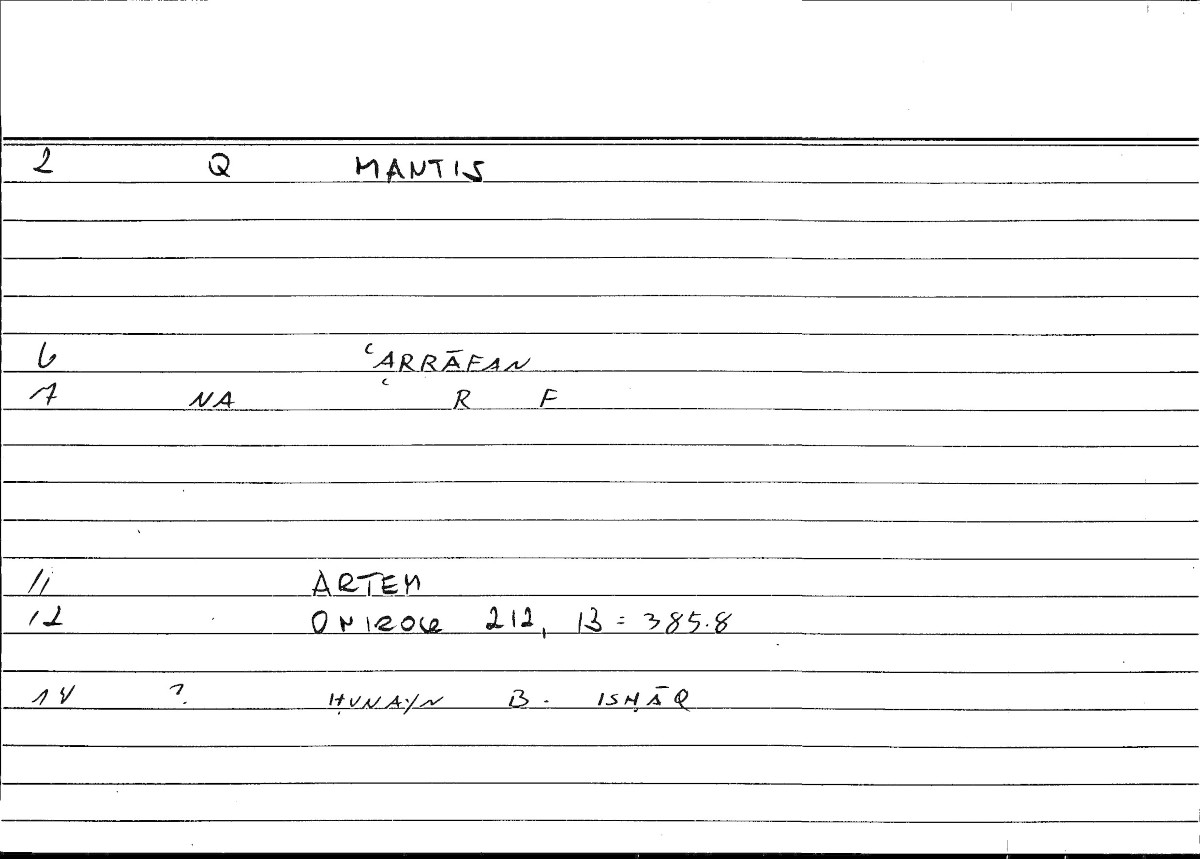 2 Q MANTIS
6 ʿARRĀFAN
7 NA ʿ R F
11 ARTEM
12 ONIROCR 212, 13 = 385.8
14 ? ḤUNAYN B. ISḤĀQ